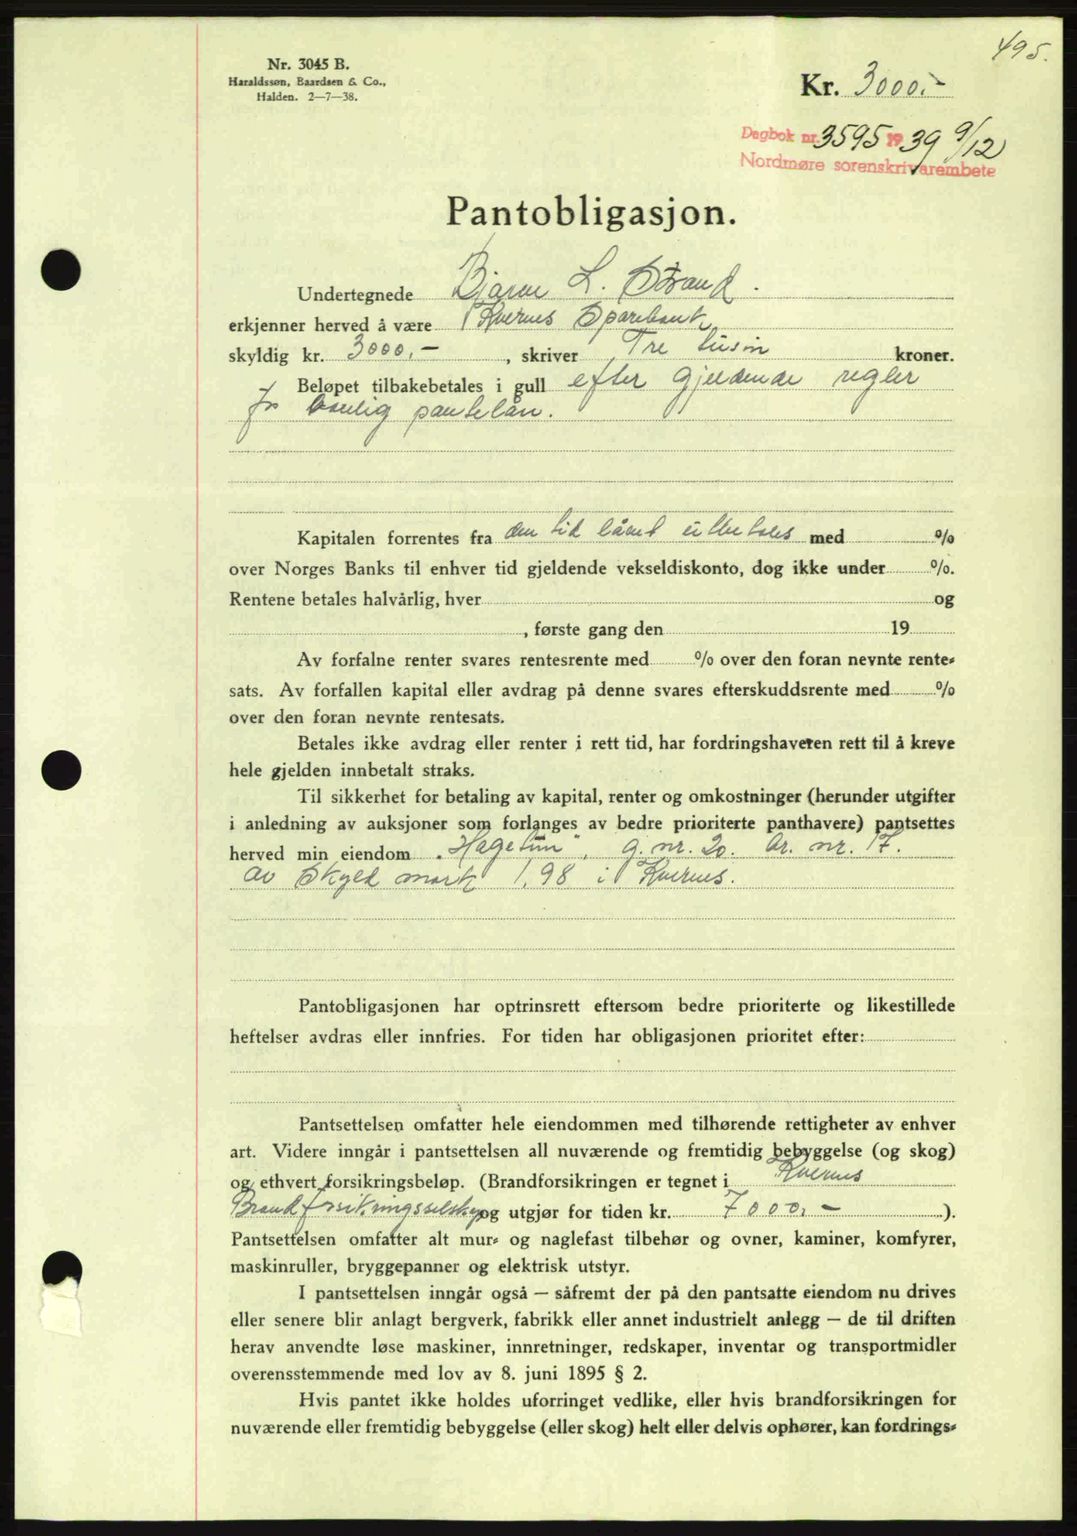 495.
Nr. 3045 B.
Haraldssøn, Baardsen & Co.,
Halden. 2—7—38.
Kr. 3000.-
Dagbok nr. 3595 1939 9/12
Nordmøre sorenskrivarembete
Pantobligasjon.
Undertegnede Bjarne L. Strand.
erkjenner herved å være Kvernes Sparebank
skyldig kr. 3000,- , skriver Tre tusin kroner.
Beløpet tilbakebetales i gull efter gjeldende regler
for vanlig pantelån.
Kapitalen forrentes fra den tid lånet utbetales med %
over Norges Banks til enhver tid gjeldende vekseldiskonto, dog ikke under %.
Rentene betales halvårlig, hver og
, første gang den 19
Av forfalne renter svares rentesrente med % over den foran nevnte rente-
sats. Av forfallen kapital eller avdrag på denne svares efterskuddsrente med %
over den foran nevnte rentesats.
Betales ikke avdrag eller renter i rett tid, har fordringshaveren rett til å kreve
hele gjelden innbetalt straks.
Til sikkerhet for betaling av kapital, renter og omkostninger (herunder utgifter
i anledning av auksjoner som forlanges av bedre prioriterte panthavere) pantsettes
herved min eiendom „Hagetun", g. nr. 20. br. nr. 17.
av Skyld mark 1,98 i Kvernes.
Pantobligasjonen har optrinsrett eftersom bedre prioriterte og likestillede
heftelser avdras eller innfries. For tiden har obligasjonen prioritet efter:
Pantsettelsen omfatter hele eiendommen med tilhørende rettigheter av enhver
art. Videre inngår i pantsettelsen all nuværende og fremtidig bebyggelse (og skog)
og ethvert forsikringsbeløp. (Brandforsikringen er tegnet i Kvernes
Brandforsikringsselskap og utgjør for tiden kr. 7000,- ).
Pantsettelsen omfatter alt mur- og naglefast tilbehør og ovner, kaminer, komfyrer,
maskinruller, bryggepanner og elektrisk utstyr.
I pantsettelsen inngår også — såfremt der på den pantsatte eiendom nu drives
eller senere blir anlagt bergverk, fabrikk eller annet industrielt anlegg — de til driften
herav anvendte løse maskiner, innretninger, redskaper, inventar og transportmidler
overensstemmende med lov av 8. juni 1895 § 2.
Hvis pantet ikke holdes uforringet vedlike, eller hvis brandforsikringen for
nuværende eller fremtidig bebyggelse (eller skog) helt eller delvis ophører, kan fordrings-